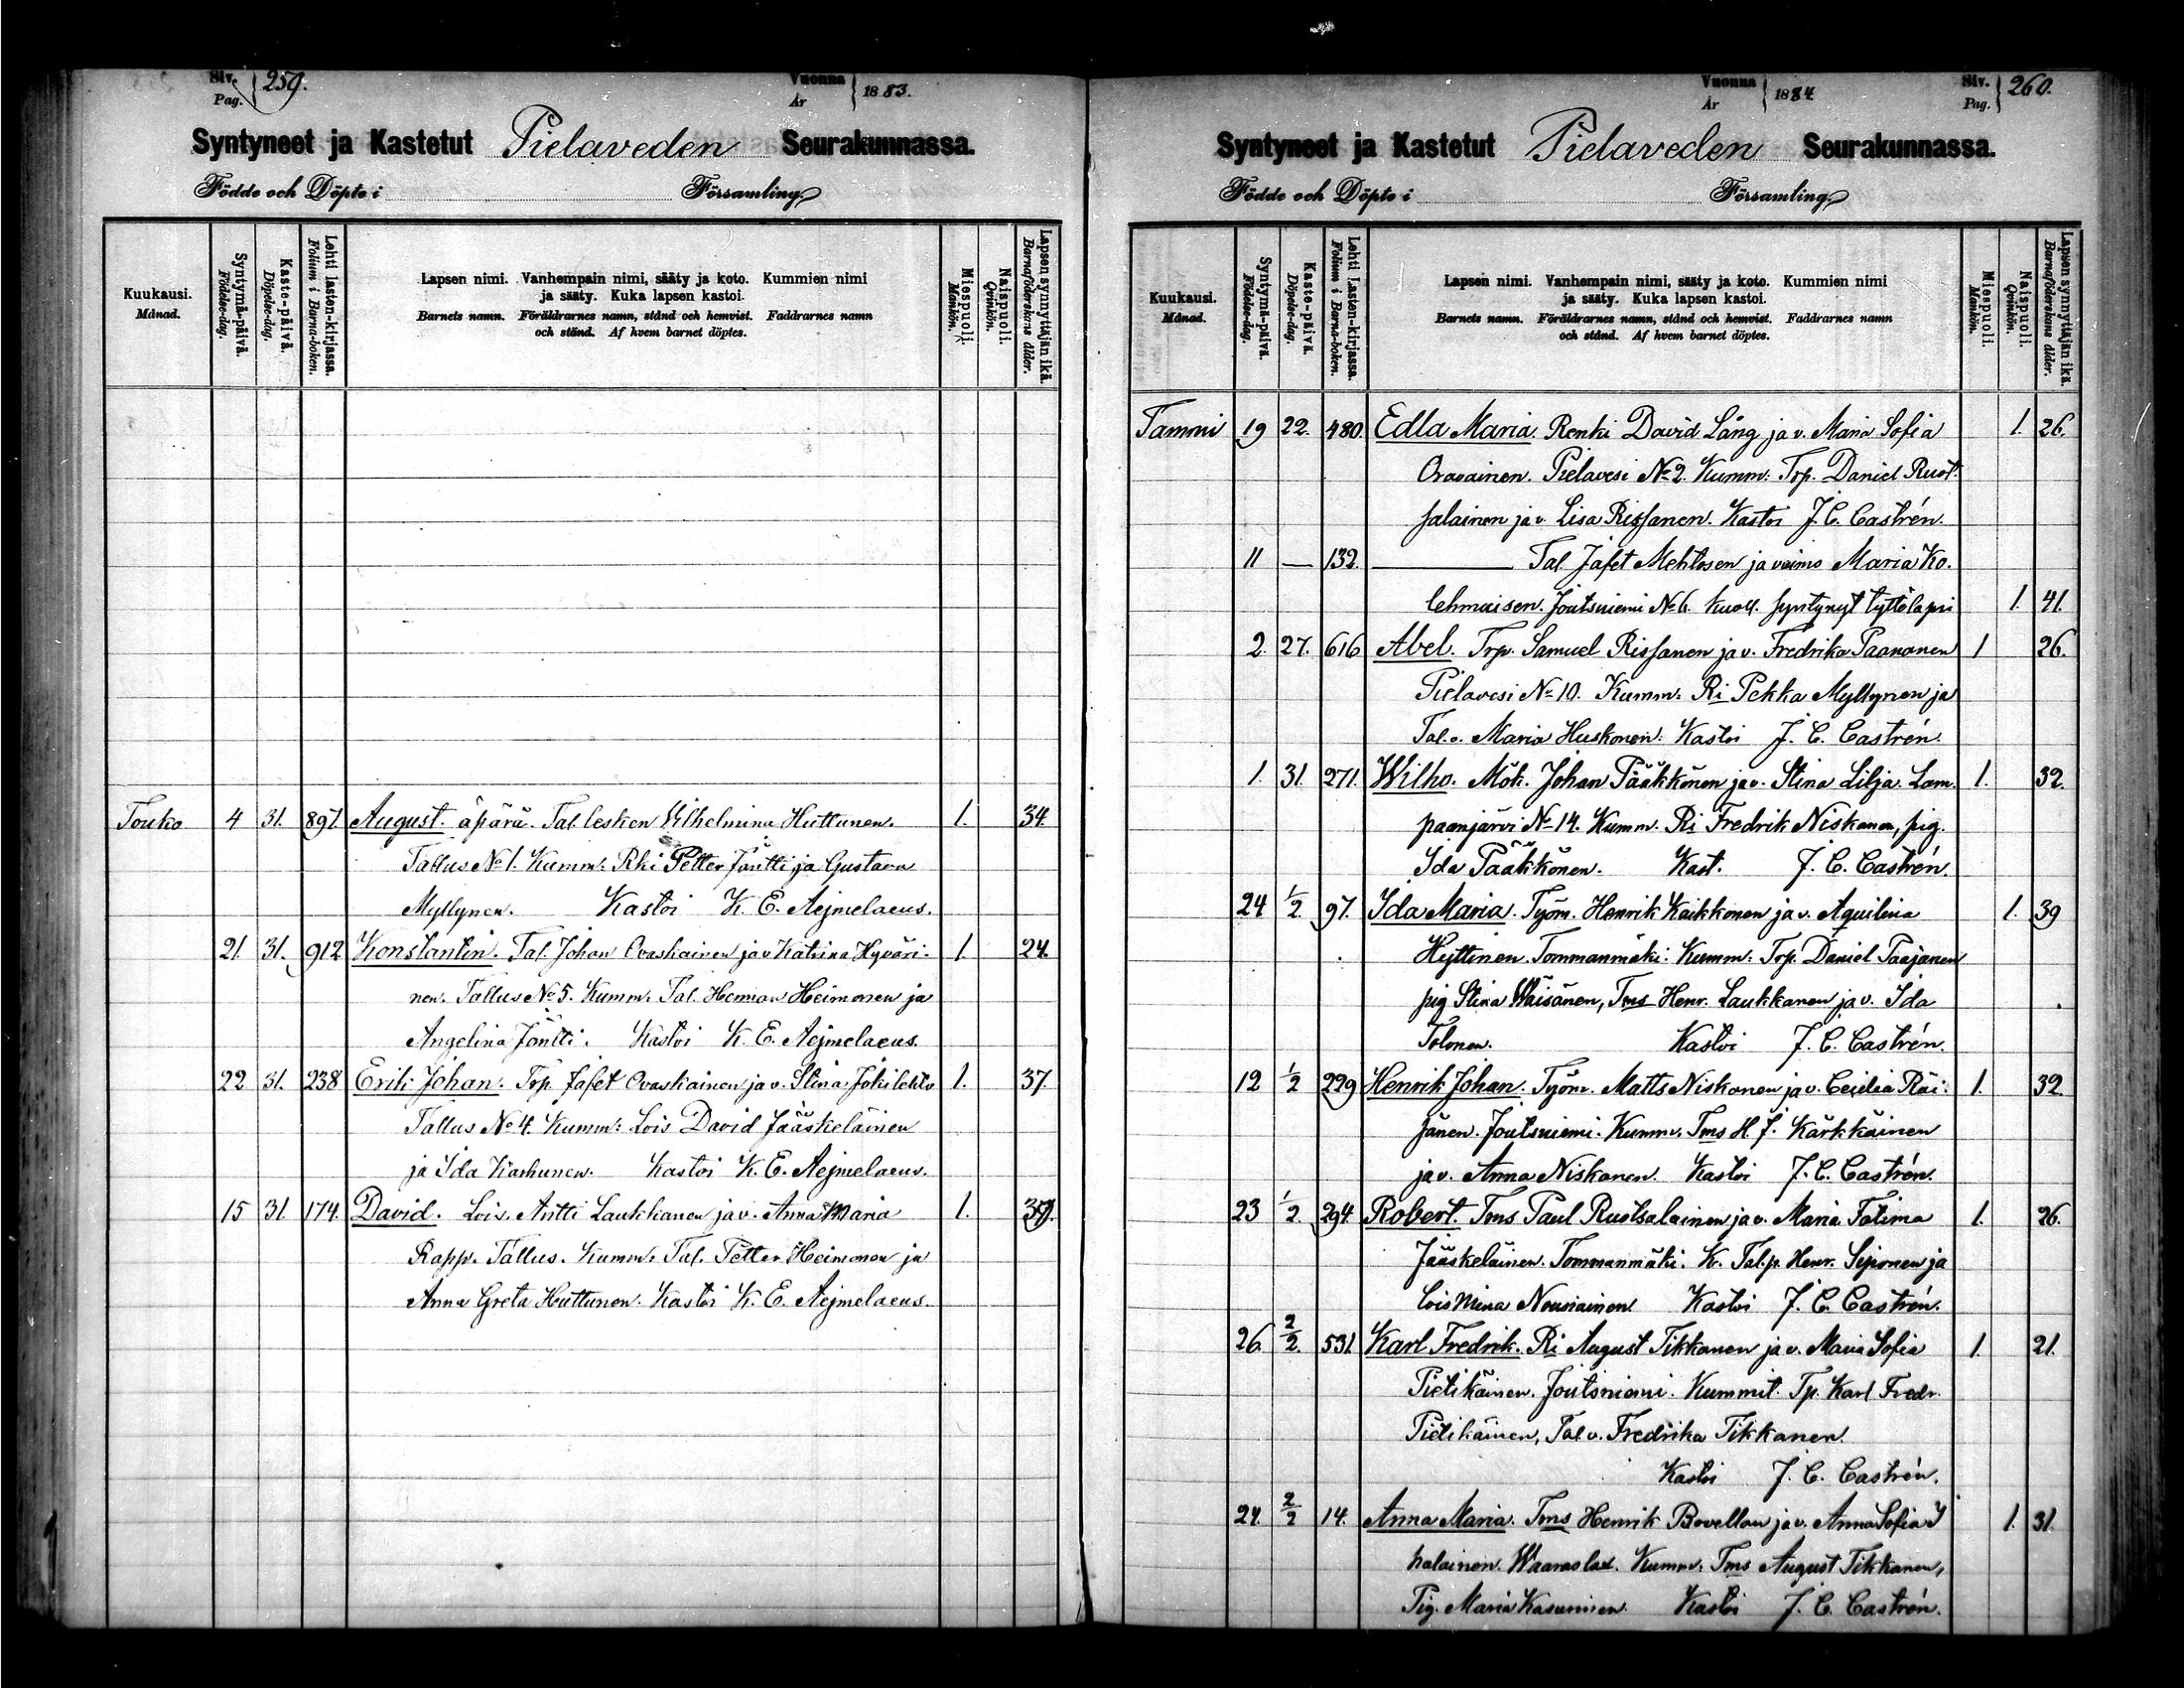 Siv. Pag. 259.
Vuonna År 1883.
Syntyneet ja Kastetut Pielaveden Seurakunnassa.
Födde och Döpte i Församling.
Kuukausi. Månad.
Syntymä-päivä. Födelse-dag.
Kaste-päivä. Döpelse-dag.
Lehti lasten-kirjassa. Folium i Barna-boken.
Lapsen nimi. Vanhempain nimi, sääty ja koto. Kummien nimi
ja sääty. Kuka lapsen kastoi.
Barnets namn. Föräldrarnes namn, stånd och hemvist. Faddrarnes namn
och stånd. Af hvem barnet döptes.
Miespuoli. Mankön.
Naispuoli. Qvinkön.
Lapsen synnyttäjän ikä. Barnaföderskans ålder.
Touko 4 31. 897. August. äpärä. Tal. lesken Wilhelmina Huttunen. 1. 34.
Tallus No 1. Kumm: Rki Petter Jäntti ja Gustava
Myllynen. Kastoi K. E. Aejmelaeus.
21. 31. 912 Konstantin. Tal. Johan Ovaskainen ja v Katrina Hyväri- 1. 24.
nen. Tallus No 5. Kumm. Tal. Herman Heimonen ja
Angelina Jäntti. Kastoi K. E. Aejmelaeus.
22 31. 238 Erik Johan. Trp. Jafet Ovaskainen ja v. Stina Jokilehto 1. 37.
Tallus No 4. Kumm: Lois David Jääskeläinen
ja Ida Karhunen. Kastoi K. E. Aejmelaeus.
15 31. 174. David. Lois. Antti Laukkanen ja v. Anna Maria 1.
Rapp. Tallus. Kumm: Tal. Petter Heimonen ja
Anna Greta Huttunen. Kastoi K. E. Aejmelaeus.
Vuonna År 1884
Siv. Pag. 260.
Syntyneet ja Kastetut Pielaveden Seurakunnassa.
Födde och Döpte i Församling.
Kuukausi. Månad.
Syntymä-päivä. Födelse-dag.
Kaste-päivä. Döpelse-dag.
Lehti Lasten-kirjassa. Folium i Barna-boken.
Lapsen nimi. Vanhempain nimi, sääty ja koto. Kummien nimi
ja sääty. Kuka lapsen kastoi.
Barnets namn. Föräldrarnes namn, stånd och hemvist. Faddrarnes namn
och stånd. Af hvem barnet döptes.
Miespuoli. Mankön.
Naispuoli. Qvinkön.
Lapsen synnyttäjän ikä. Barnaföderskans ålder.
Tammi 19 22. 480. Edla Maria. Renki David Lång ja v. Maria Sofia 1. 26.
Oravainen. Pielavesi No 2. Kumm: Trp. Daniel Ruot-
salainen ja v. Lisa Rissanen. Kastoi J. C. Castrén.
11 — 132. — Tal. Jafet Mehtosen ja vaimo Maria Ko-
lehmaisen. Joutsniemi No 6. kuoll. syntynyt tyttölapsi 1. 41.
2. 27. 616 Abel. Trp. Samuel Rissanen ja v. Fredrika Paananen 1 26.
Pielavesi No 10. Kumm: Ri Pekka Myllynen ja
Tal. v. Maria Huskonen. Kastoi J. C. Castrén.
1. 31. 271. Wilho. Mök. Johan Pääkkönen ja v. Stina Lilja. Lam- 1. 32.
paanjärvi No 14. Kumm. Ri Fredrik Niskanen, pig.
Ida Pääkkönen. Kast. J. C. Castrén.
24 1/2 97. Ida Maria. Työm. Henrik Kaikkonen ja v. Aquilina 1. 39
Hyttinen. Tommanmäki. Kumm: Trp. Daniel Taajanen
pig Stina Wäisänen, Tms Henr. Laukkanen ja v. Ida
Tolonen. Kastoi J. C. Castrén.
12 1/2 229 Henrik Johan. Työm. Matts Niskanen ja v. Cecilia Räi- 1. 32.
jänen. Joutsniemi. Kumm. Tms H. J. Kärkkäinen
ja v. Anna Niskanen. Kastoi J. C. Castrén.
23 1/2. 294. Robert. Tms Paul Ruotsalainen ja v. Maria Fatima 1. 26.
Jääskeläinen. Tommanmäki. K. Tal.p. Henr. Seponen ja
Lois Mina Nousiainen Kastoi J. C. Castrén.
26. 2/2. 531 Karl Fredrik. Ri August Tikkanen ja v. Maria Sofia 1. 21.
Pietikäinen. Joutsniemi. Kummit. Tp. Karl Fredr.
Pietikäinen, Tal. v. Fredrika Tikkanen.
Kastoi J. C. Castrén.
24. 2/2 14. Anna Maria. Tms Henrik Bovellan ja v. Anna Sofia I 1. 31.
halainen. Waaraslax. Kumm. Tms August Tikkanen,
Pig. Maria Kasurinen. Kastoi J. C. Castrén.